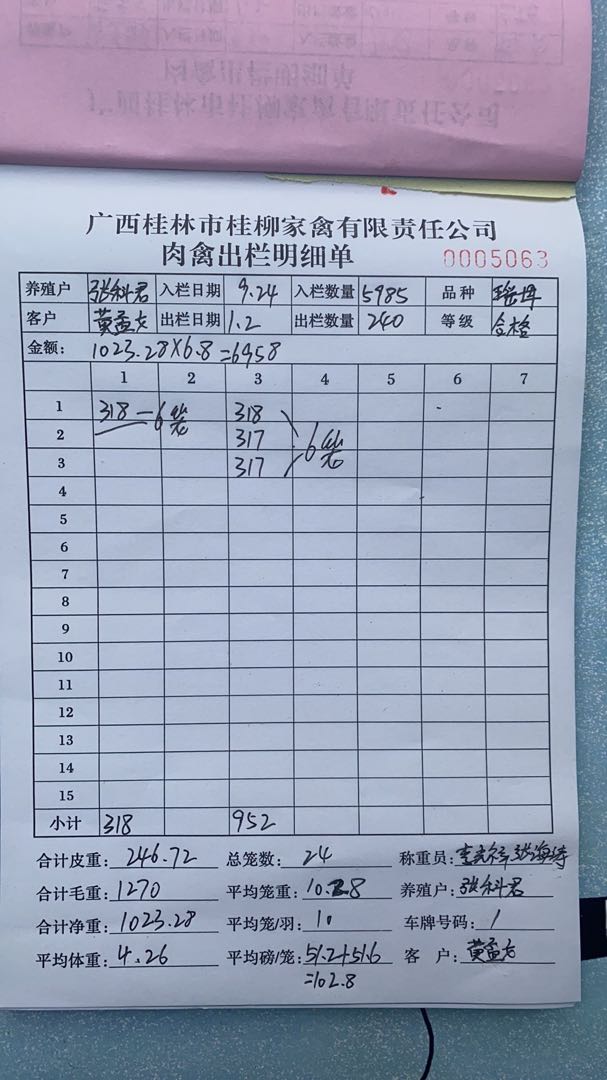 广西桂林市桂柳家禽有限责任公司
肉禽出栏明细单 0005063
养殖户 张科君 入栏日期 9.24 入栏数量 5985 品种
客户 黄孟 出栏日期 1.2 出栏数量 240 等级 合格
金额: 1023.28×6.8=6958
1 2 3 4 5 6 7
1 318 — 6笼 318
2 317 6笼
3 317
4
5
6
7
8
9
10
11
12
13
14
15
小计 318 952
合计皮重: 246.72 总笼数: 24 称重员: 张海涛
合计毛重: 1270 平均笼重: 10.28 养殖户: 张科君
合计净重: 1023.28 平均笼/羽: 10 车牌号码: 1
平均体重: 4.26 平均磅/笼: 51.2+51.6 客 户: 黄孟
=102.8